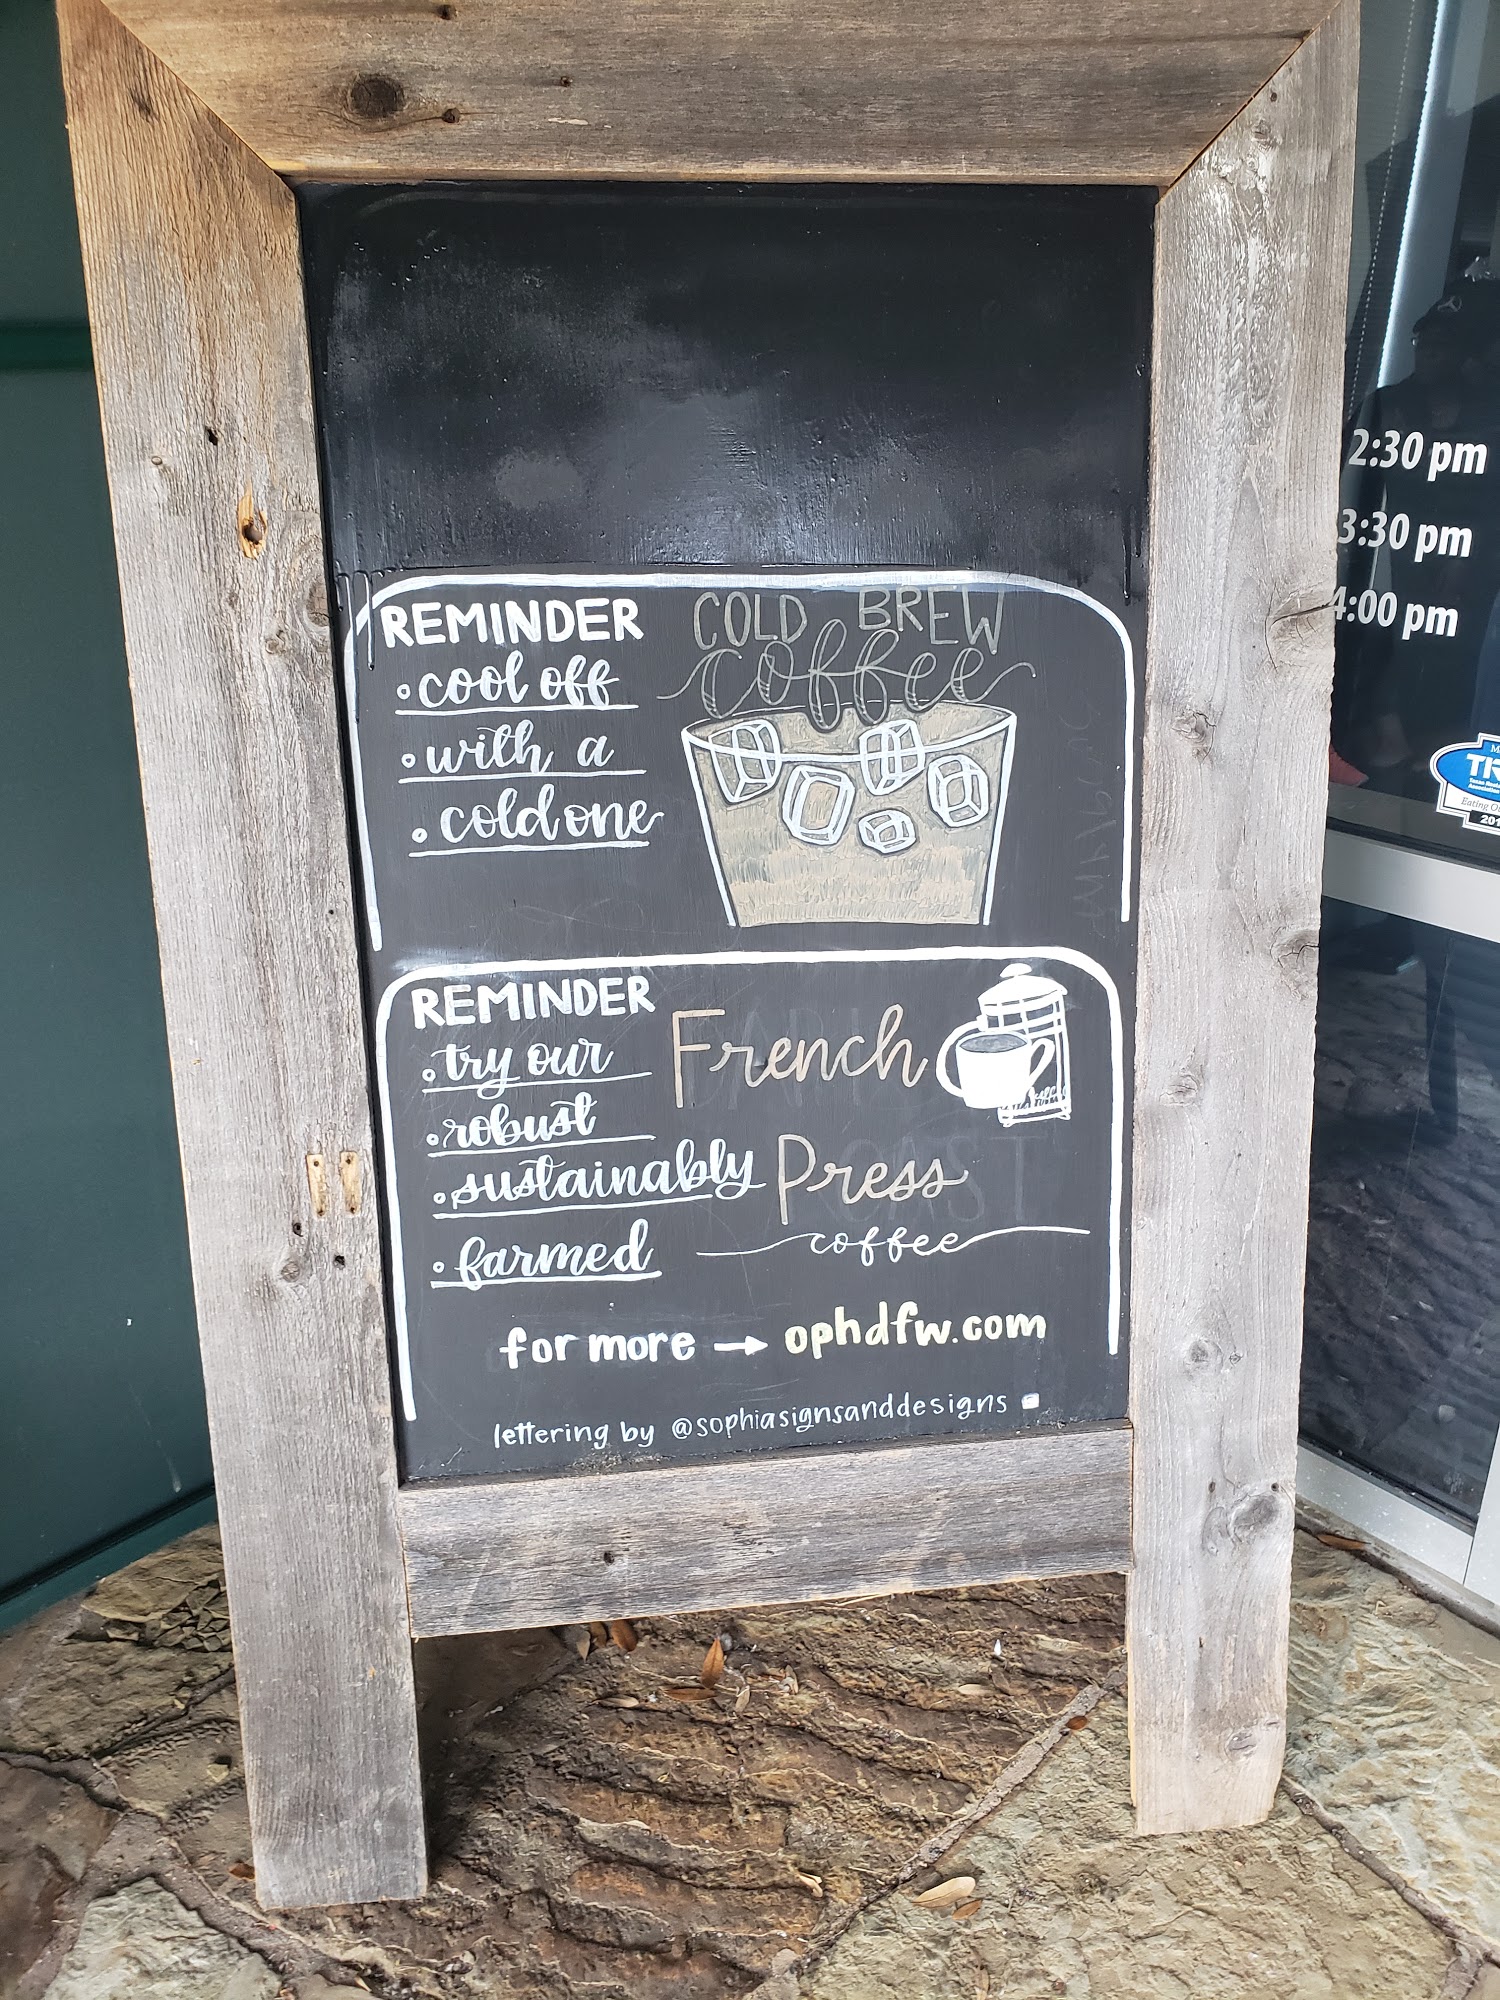 REMINDER
• cool off
• with a
• cold one
COLD BREW
coffee
REMINDER
• try our
• robust
• sustainably
• farmed
French
Press
coffee
for more → ophdfw.com
lettering by @sophiasignsanddesigns
2:30 pm
3:30 pm
4:00 pm